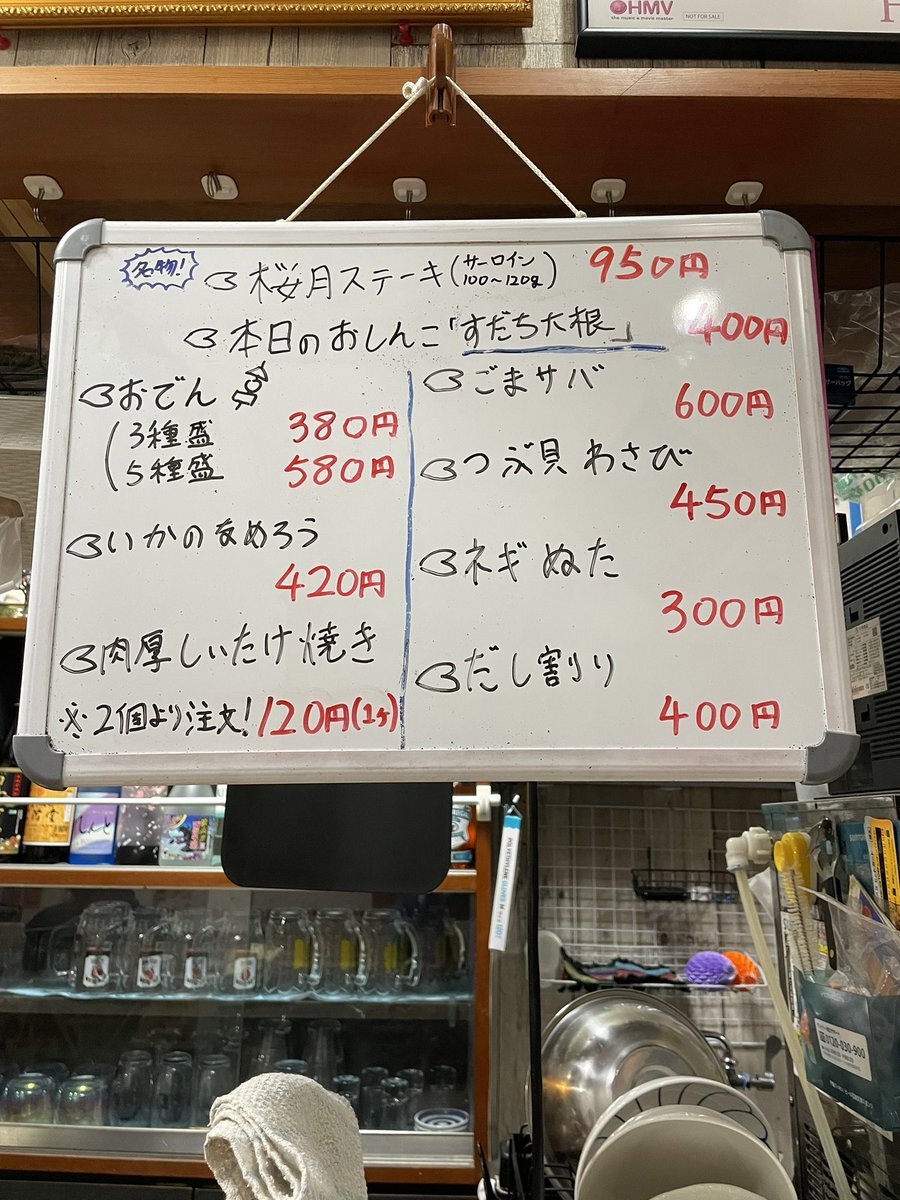 HMV
the music & movie master
NOT FOR SALE
名物!
桜月ステーキ(サーロイン 100〜120g) 950円
本日のおしんこ「すだち大根」 400円
おでん
3種盛 380円
5種盛 580円
いかのなめろう
420円
肉厚しいたけ焼き
※2個より注文! 120円(1ヶ)
ごまサバ
600円
つぶ貝わさび
450円
ネギぬた
300円
だし割り
400円
0120-030-900